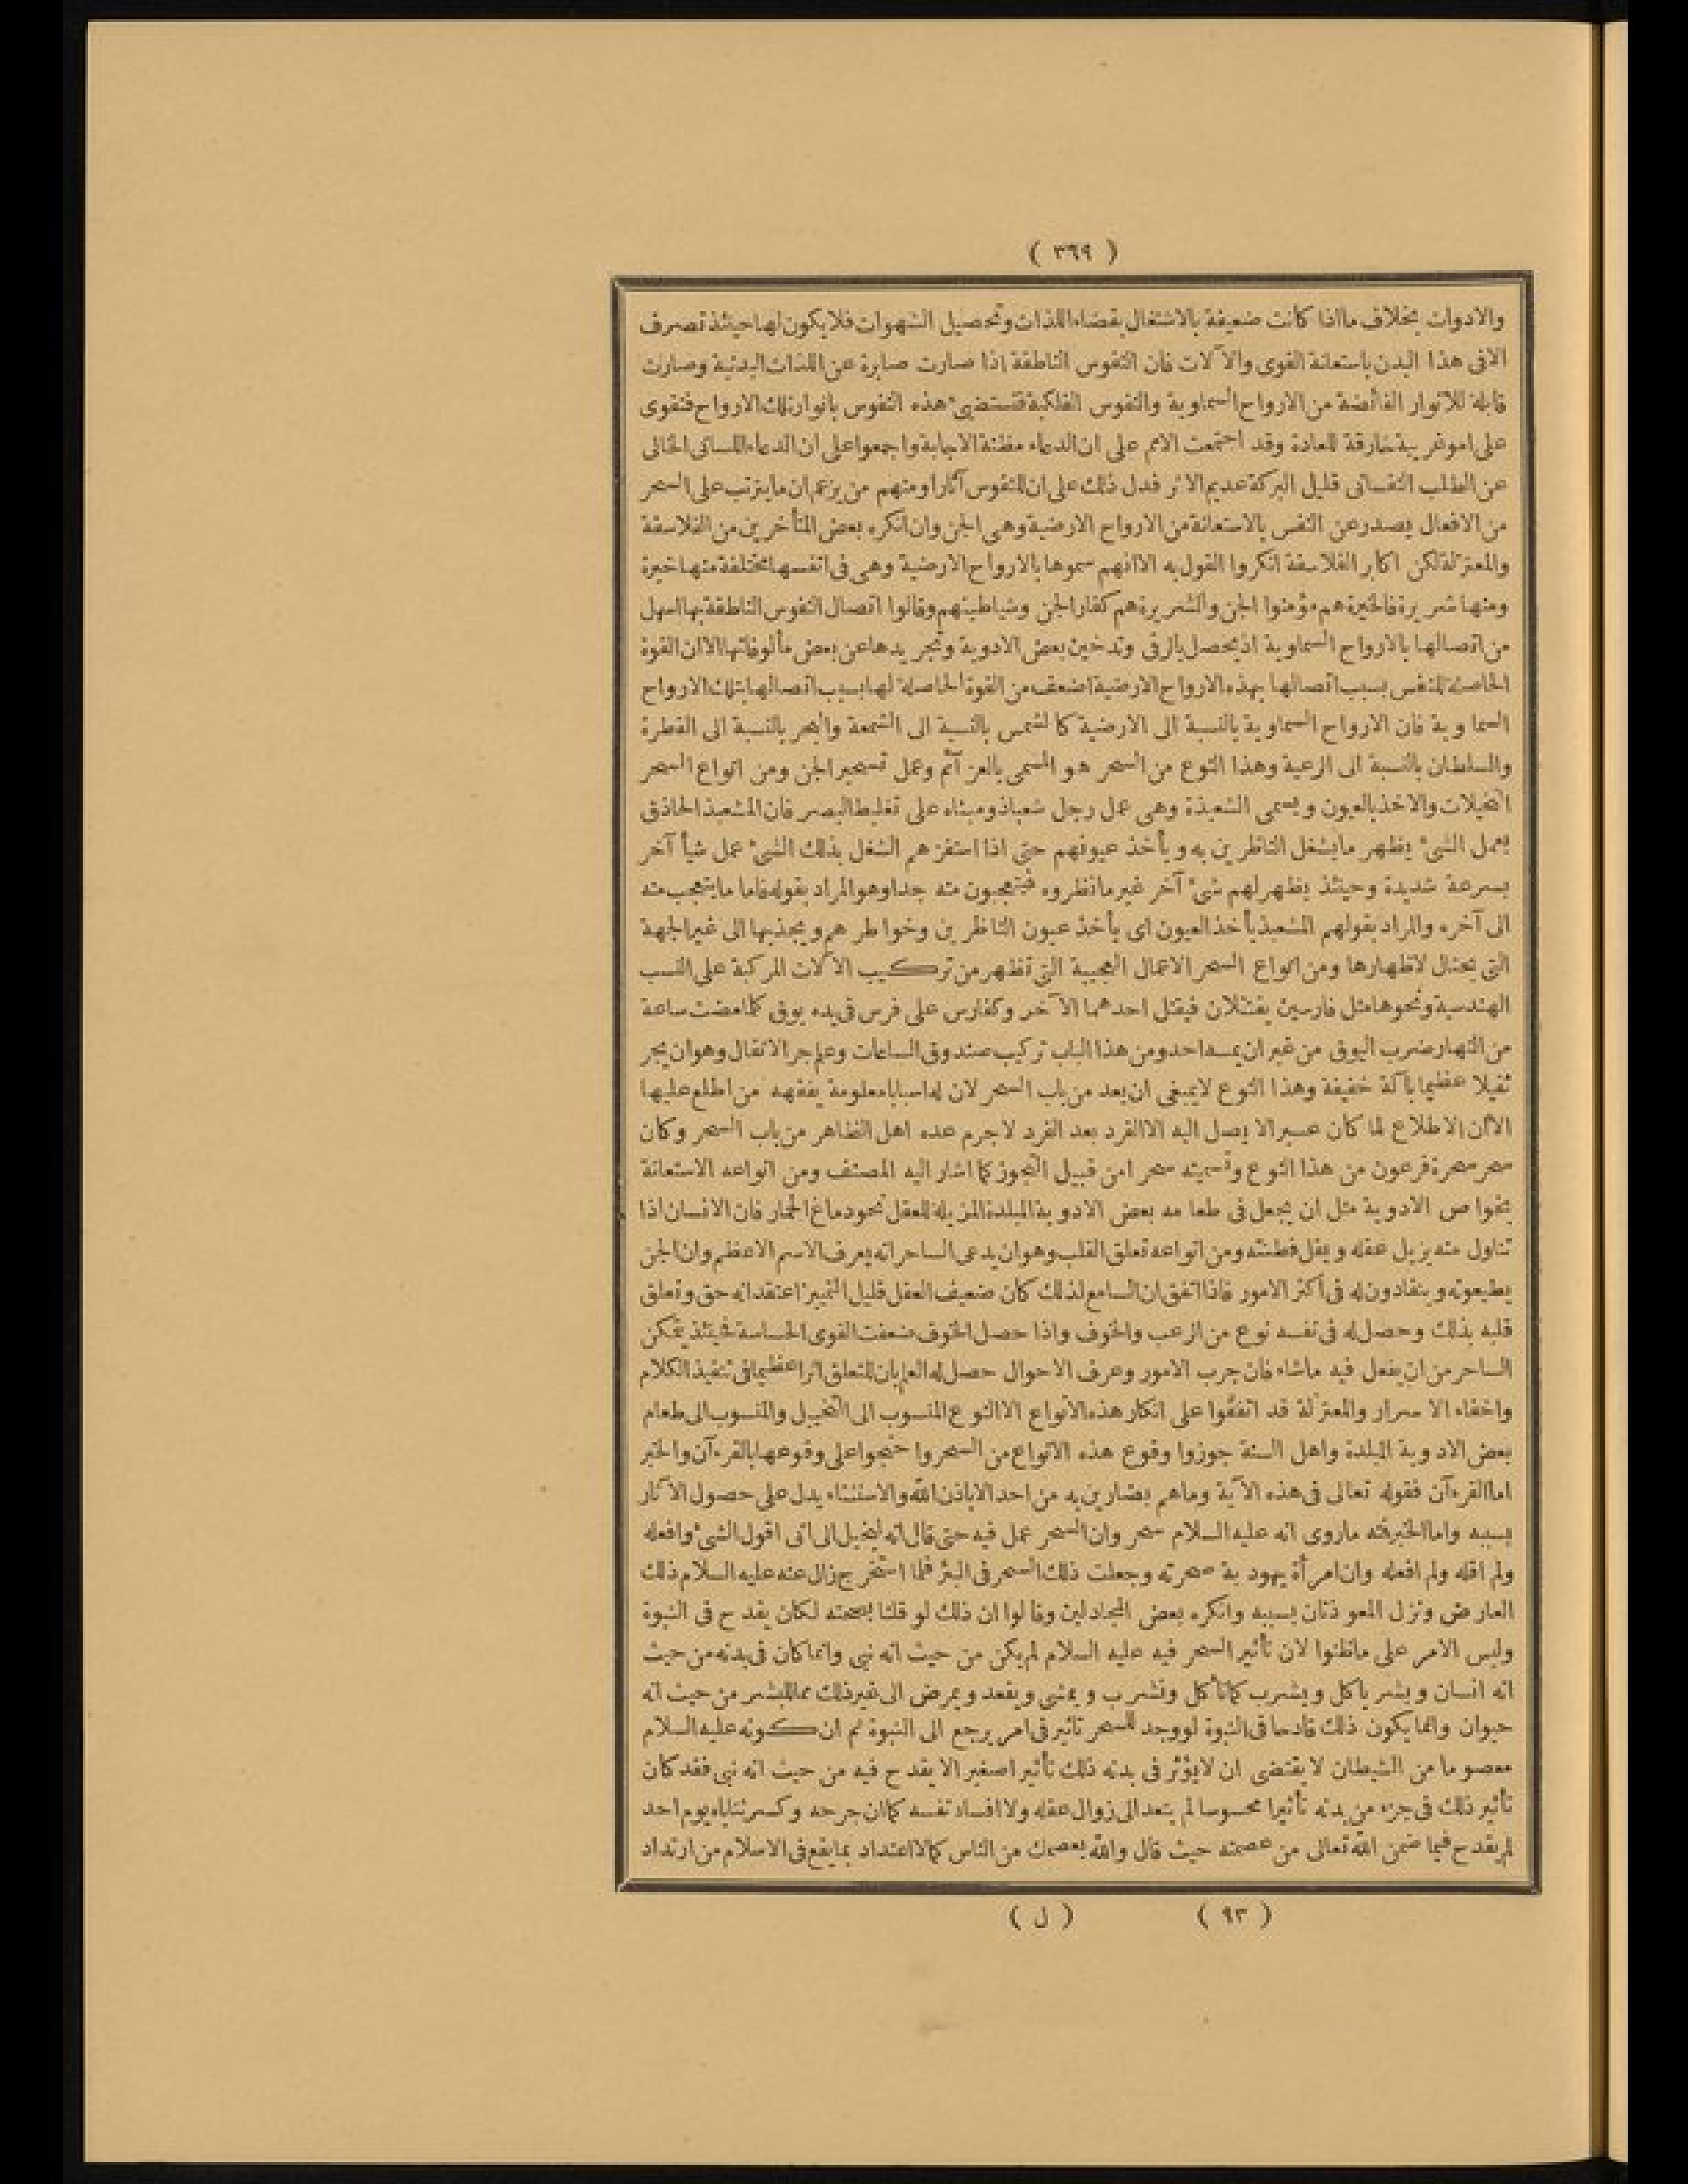 ( ٣٦٩ )
والادوات بخلاف مااذا كانت ضعيفة بالاشتغال بقضاء اللذات وتحصيل الشهوات فلا يكون لها حينئذ تصرف
الا فى هذا البدن باستعانة القوى والآلات فان النفوس الناطقة اذا صارت صابرة عن اللذات البدنية وصارت
قابلة للانوار الفائضة من الارواح السماوية والنفوس الفلكية فتستضيئ هذه النفوس بانوار تلك الارواح فتقوى
على امو غريبة خارقة للعادة وقد اجتمعت الامم على ان الدعاء مظنة الاجابة واجمعوا على ان الدعاء اللسانى الخالى
عن الطلب النفسانى قليل البركة عديم الاثر فدل ذلك على ان للنفوس آثارا ومنهم من يزعم ان ما يترتب على السحر
من الافعال يصدر عن النفس بالاستعانة من الارواح الارضية وهى الجن وان انكره بعض المتأخرين من الفلاسفة
والمعتزلة لكن اكابر الفلاسفة انكروا القول به الا انهم سموها بالارواح الارضية وهى فى انفسها مختلفة منها خيرة
ومنها شريرة فالخيرة هم مؤمنوا الجن والشريرة هم كفار الجن وشياطينهم وقالوا اتصال النفوس الناطقة بها اسهل
من اتصالها بالارواح السماوية اذ يحصل بالرقى وتدخين بعض الادوية وتجريدها عن بعض مألوفاتها الا ان القوة
الحاصلة للنفس بسبب اتصالها بهذه الارواح الارضية اضعف من القوة الحاصلة لها بسبب اتصالها بتلك الارواح
السما وية فان الارواح السماوية بالنسبة الى الارضية كا لشمس بالنسبة الى الشمعة والبحر بالنسبة الى القطرة
والسلطان بالنسبة الى الرعية وهذا النوع من السحر هو المسمى بالعزآئم وعمل تسخير الجن ومن انواع السحر
التخيلات والاخذ بالعيون ويسمى الشعبذة وهى عمل رجل شعباذ ومبناه على تغليط البصر فان المشعبذ الحاذق
يعمل الشئ يظهر ما يشغل الناظرين به ويأخذ عيونهم حتى اذا استفزهم الشغل بذلك الشئ عمل شيأ آخر
بسرعة شديدة وحينئذ يظهر لهم شئ آخر غير ما نظروه فيتعجبون منه جدا وهو المراد بقوله فاما ما يتعجب منه
الى آخره والمراد بقولهم المشعبذ يأخذ العيون اى يأخذ عيون الناظرين وخواطرهم ويجذبها الى غير الجهة
التى يحتال لاظهارها ومن انواع السحر الاعمال العجيبة التى تظهر من تركيب الآلات المركبة على النسب
الهندسية ونحوها مثل فارسين يقتتلان فيقتل احدهما الآخر وكفارس على فرس فى يده بوق كلما مضت ساعة
من النهار ضرب البوق من غير ان يمسه احد ومن هذا الباب تركيب صندوق الساعات وعلم جر الاثقال وهو ان يجر
ثقيلا عظيما بآلة خفيفة وهذا النوع لا ينبغى ان يعد من باب السحر لان له اسبابا معلومة يفقهه من اطلع عليها
الا ان الاطلاع لما كان عسيرا لا يصل اليه الا الفرد بعد الفرد لاجرم عده اهل الظاهر من باب السحر وكان
سحر سحرة فرعون من هذا النوع وتسميته سحر امن قبيل التجوز كما اشار اليه المصنف ومن انواعه الاستعانة
بخواص الادوية مثل ان يجعل فى طعا مه بعض الادوية المبلدة المزيلة للعقل نحو دماغ الحمار فان الانسان اذا
تناول منه يزيل عقله ويقل فطنته ومن انواعه تعلق القلب وهو ان يدعى الساحر انه يعرف الاسم الاعظم وان الجن
يطيعونه وينقادون له فى أكثر الامور فاذا اتفق ان السامع لذلك كان ضعيف العقل قليل التمييز اعتقد انه حق وتعلق
قلبه بذلك وحصل له فى نفسه نوع من الرعب والخوف واذا حصل الخوف ضعفت القوى الحساسة فحينئذ يتمكن
الساحر من ان يفعل فيه ماشاء فان جرب الامور وعرف الاحوال حصل له العلم بان للتعلق اثرا عظيما فى تنفيذ الكلام
واخفاء الا سرار والمعتزلة قد اتفقوا على انكار هذه الانواع الا النوع المنسوب الى التخييل والمنسوب الى طعام
بعض الادوية المبلدة واهل السنة جوزوا وقوع هذه الانواع من السحر واحتجوا على وقوعها بالقرءآن والخبر
اما القرءآن فقوله تعالى فى هذه الآية وماهم بضارين به من احد الا باذن الله والاستثناء يدل على حصول الآثار
بسببه واما الخبر فمنه ماروى انه عليه السلام سحر وان السحر عمل فيه حتى قال انه ليخيل الى انى اقول الشئ وافعله
ولم اقله ولم افعله وان امرأة يهود ية سحرته وجعلت ذلك السحر فى البئر فلما استخرج زال عنه عليه السلام ذلك
العارض ونزل المعو ذتان بسببه وانكره بعض المجادلين وقالوا ان ذلك لو قلنا بصحته لكان يقدح فى النبوة
وليس الامر على ماظنوا لان تأثير السحر فيه عليه السلام لم يكن من حيث انه نبى وانما كان فى بدنه من حيث
انه انسان وبشر ياكل ويشرب كمانأكل ونشرب ويمشى ويقعد ويمرض الى غير ذلك مما للبشر من حيث انه
حيوان وانما يكون ذلك قادحا فى النبوة لو وجد للسحر تاثير فى امر يرجع الى النبوة ثم ان كونه عليه السلام
معصو ما من الشيطان لا يقتضى ان لا يؤثر فى بدنه ذلك تأثيرا صغيرا لا يقدح فيه من حيث انه نبى فقد كان
تأثير ذلك فى جزء من بدنه تأثيرا محسوسا لم يتعد الى زوال عقله ولا افساد نفسه كما ان جرحه وكسر ثناياه يوم احد
لم يقدح فيما ضمن الله تعالى من عصمته حيث قال والله يعصمك من الناس كمالا اعتداد بما يقع فى الاسلام من ارتداد
( ٩٣ ) ( ل )